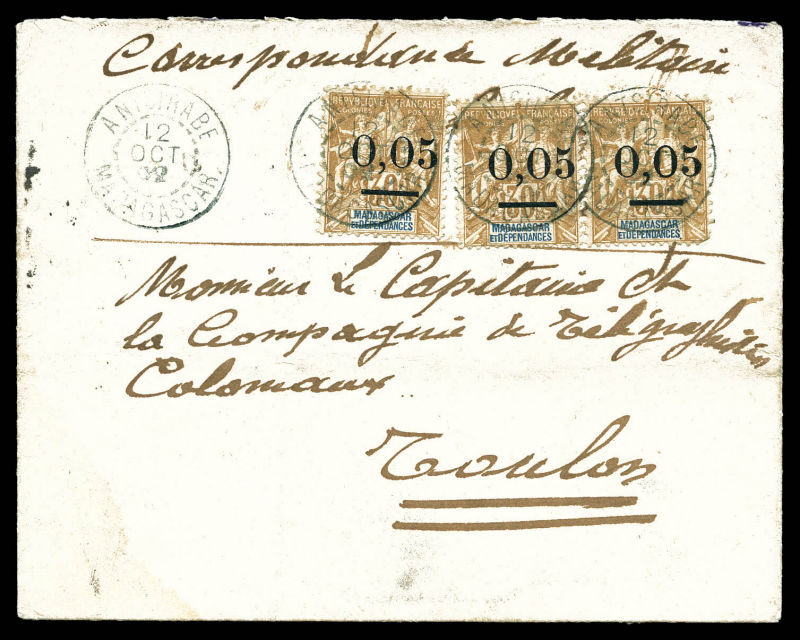 Correspondance Militaire
ANTSIRABE
12
OCT
02
MADAGASCAR
REPUBLIQUE FRANCAISE
COLONIES POSTES
0,05
MADAGASCAR
ET DÉPENDANCES
REPUBLIQUE FRANCAISE
12
0,05
30
MADAGASCAR
ET DÉPENDANCES
REPUBLIQUE FRANCAISE
12
0,05
30
MADAGASCAR
ET DÉPENDANCES
Monsieur Le Capitaine Ct
la Compagnie de Télégraphistes
Coloniaux
Toulon